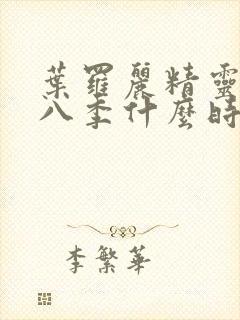 葉羅麗精靈
八季什麼時
李繁華